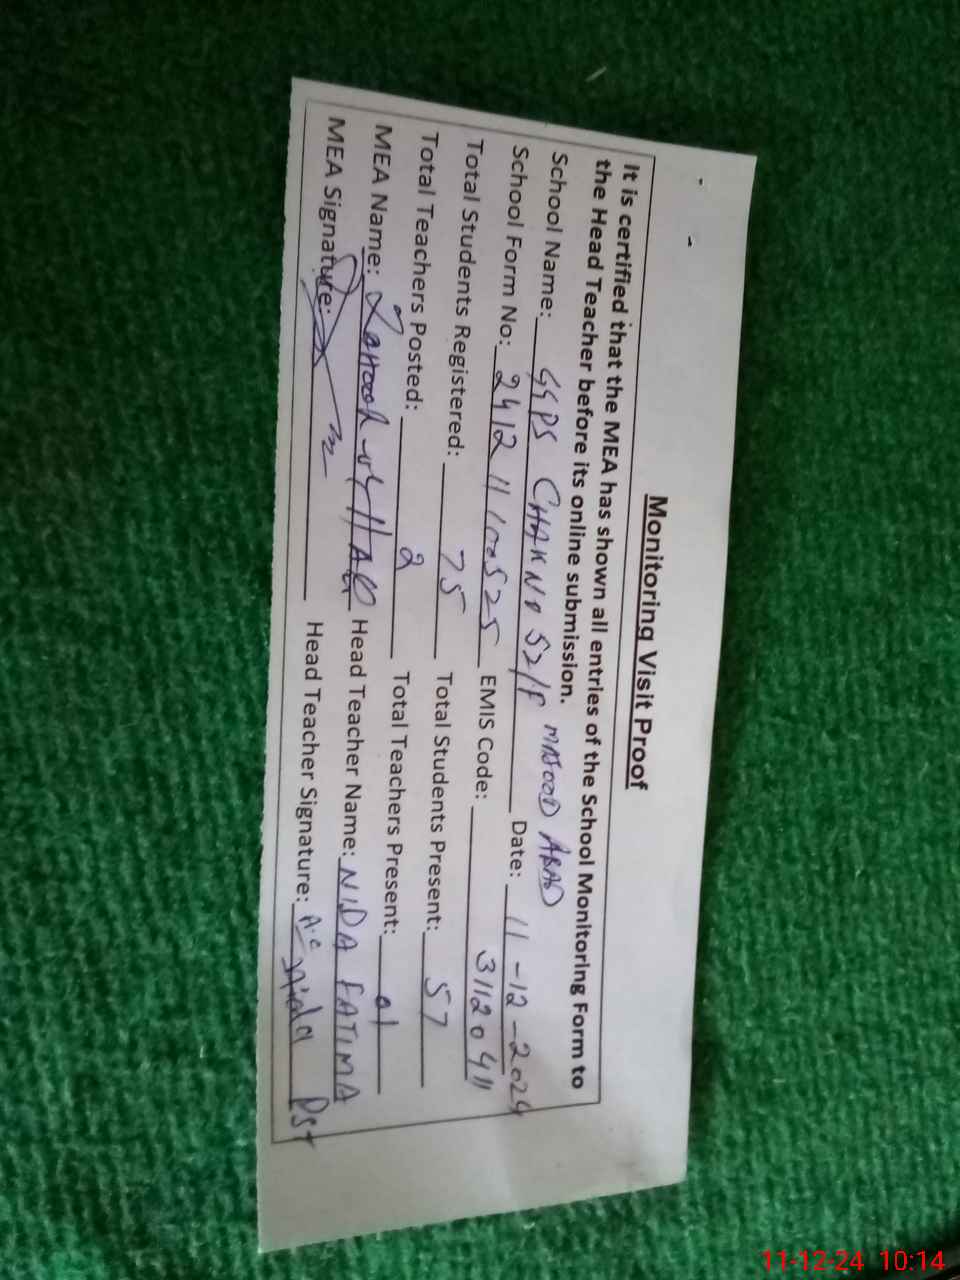 Monitoring Visit Proof
It is certified that the MEA has shown all entries of the School Monitoring Form to
the Head Teacher before its online submission.
School Name: GGPS CHAK NO 52/F MASOOD ABAD
School Form No: 241211100525 Date: 11-12-2024
Total Students Registered: 75 EMIS Code: 31120411
Total Teachers Posted: 2 Total Students Present: 57
MEA Name: Total Teachers Present: 01
MEA Signature: Head Teacher Name: NIDA FATIMA
Head Teacher Signature: Nida PST
11-12-24 10:14